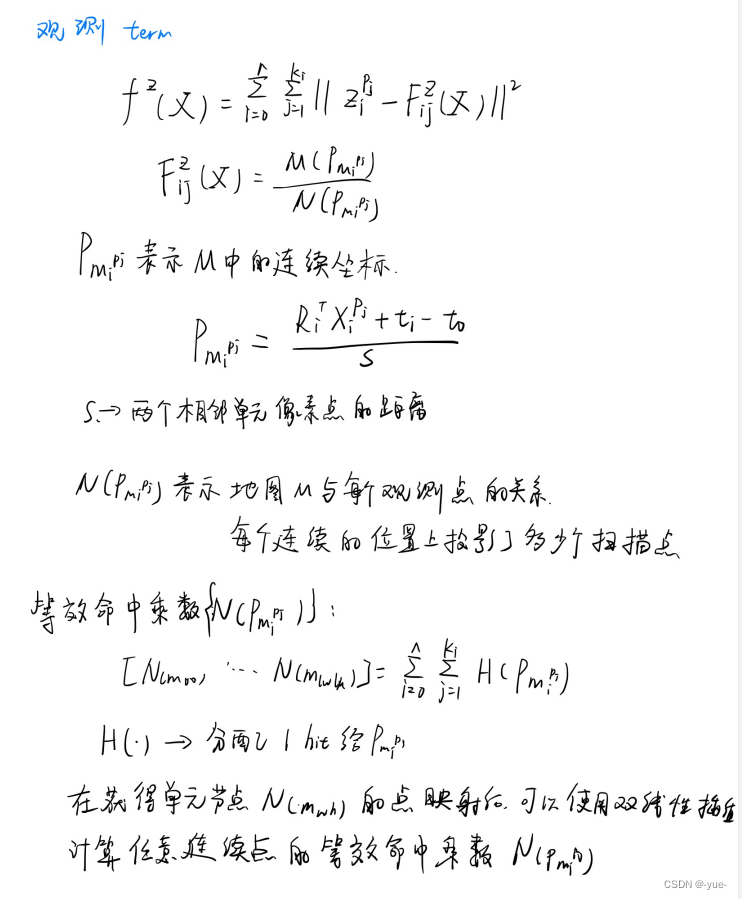 观测 term
f^z(X) = \sum_{i=0}^{n} \sum_{j=1}^{k_i} || z_i^{p_j} - F_{ij}^z(X) ||^2
F_{ij}^z(X) = \frac{M(P_{m_i^{p_j}})}{N(P_{m_i^{p_j}})}
P_{m_i^{p_j}} 表示 M 中的连续坐标.
P_{m_i^{p_j}} = \frac{R_i^T X_i^{p_j} + t_i - t_0}{s}
S → 两个相邻单元像素点的距离
N(P_{m_i^{p_j}}) 表示 地图 M 与每个观测点的关系.
每个连续的位置上投影了多少个扫描点
等效命中乘数{N(P_{m_i^{p_j}})}:
[N(m_{00}), ... N(m_{wh})] = \sum_{i=0}^{n} \sum_{j=1}^{k_i} H(P_{m_i^{p_j}})
H(·) → 分配了 1 hit 给 P_{m_i^{p_j}}
在获得单元节点 N(m_{wh}) 的点映射后, 可以使用双线性插值
计算任意连续点的等效命中乘数 N(P_{m_i^{p_j}})
CSDN @-yue-